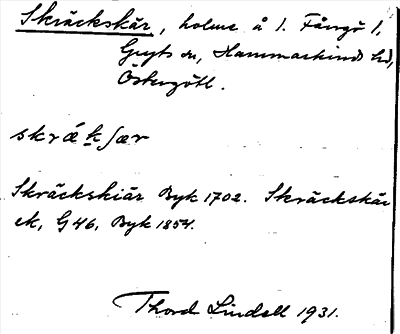 Skräckskär, holme å 1. Fångö 1,
Gryts sn, Hammarkinds hd,
Östergötl.
skrækʃær
Skräckskiär Byk 1702. Skräckskär
ek, G 46, Byk 1854.
Thord Lindell 1931.